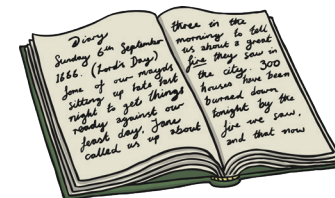 Diary
Sunday 6th September
1666. (Lord's Day)
Some of our mayds
sitting up late last
night to get things
ready against our
feast day, Jane
called us up about
three in the
morning to tell
us about a great
fire they saw in
the city. 300
houses have been
burned down
tonight by the
fire we saw,
and that now